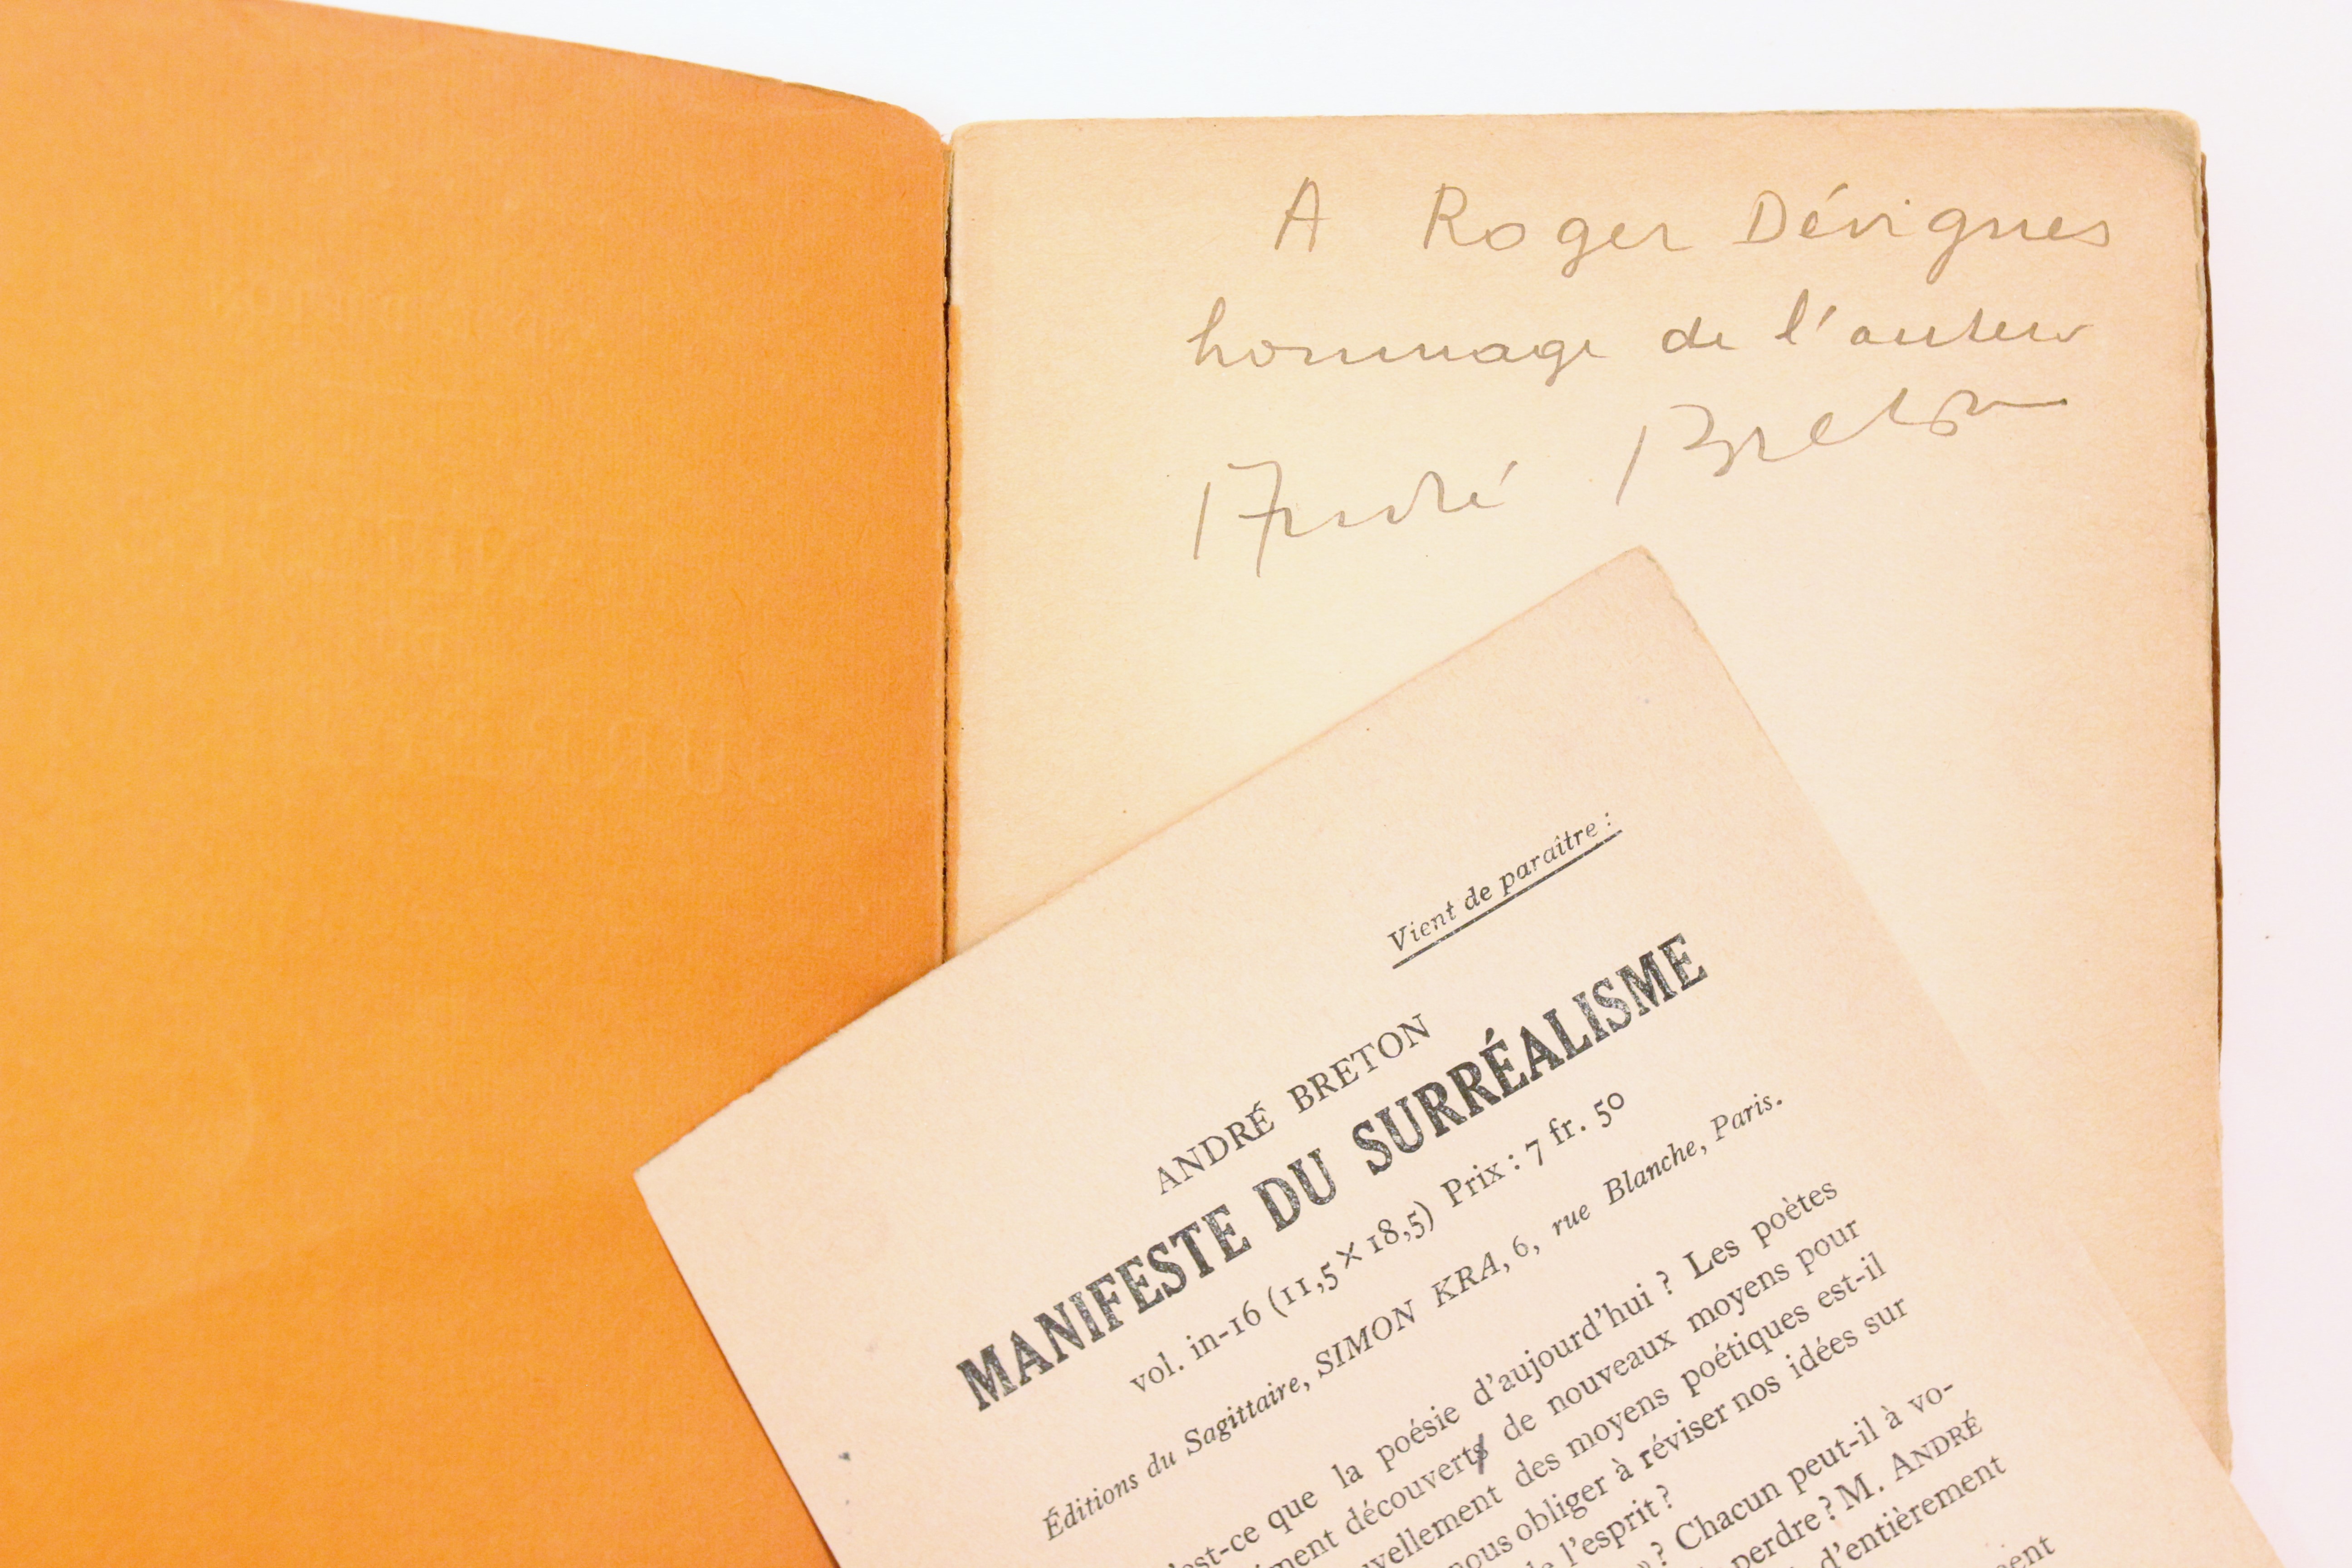 A Roger Dévignes
hommage de l'auteur
André Breton
Vient de paraître :
ANDRÉ BRETON
MANIFESTE DU SURRÉALISME
vol. in-16 (11,5 × 18,5) Prix : 7 fr. 50
Éditions du Sagittaire, SIMON KRA, 6, rue Blanche, Paris.
est-ce que la poésie d'aujourd'hui ? Les poètes
découverts de nouveaux moyens pour
des moyens poétiques est-il
nous obliger à réviser nos idées sur
l'esprit ?
? Chacun peut-il à vo-
perdre ? M. ANDRÉ
d'entièrement